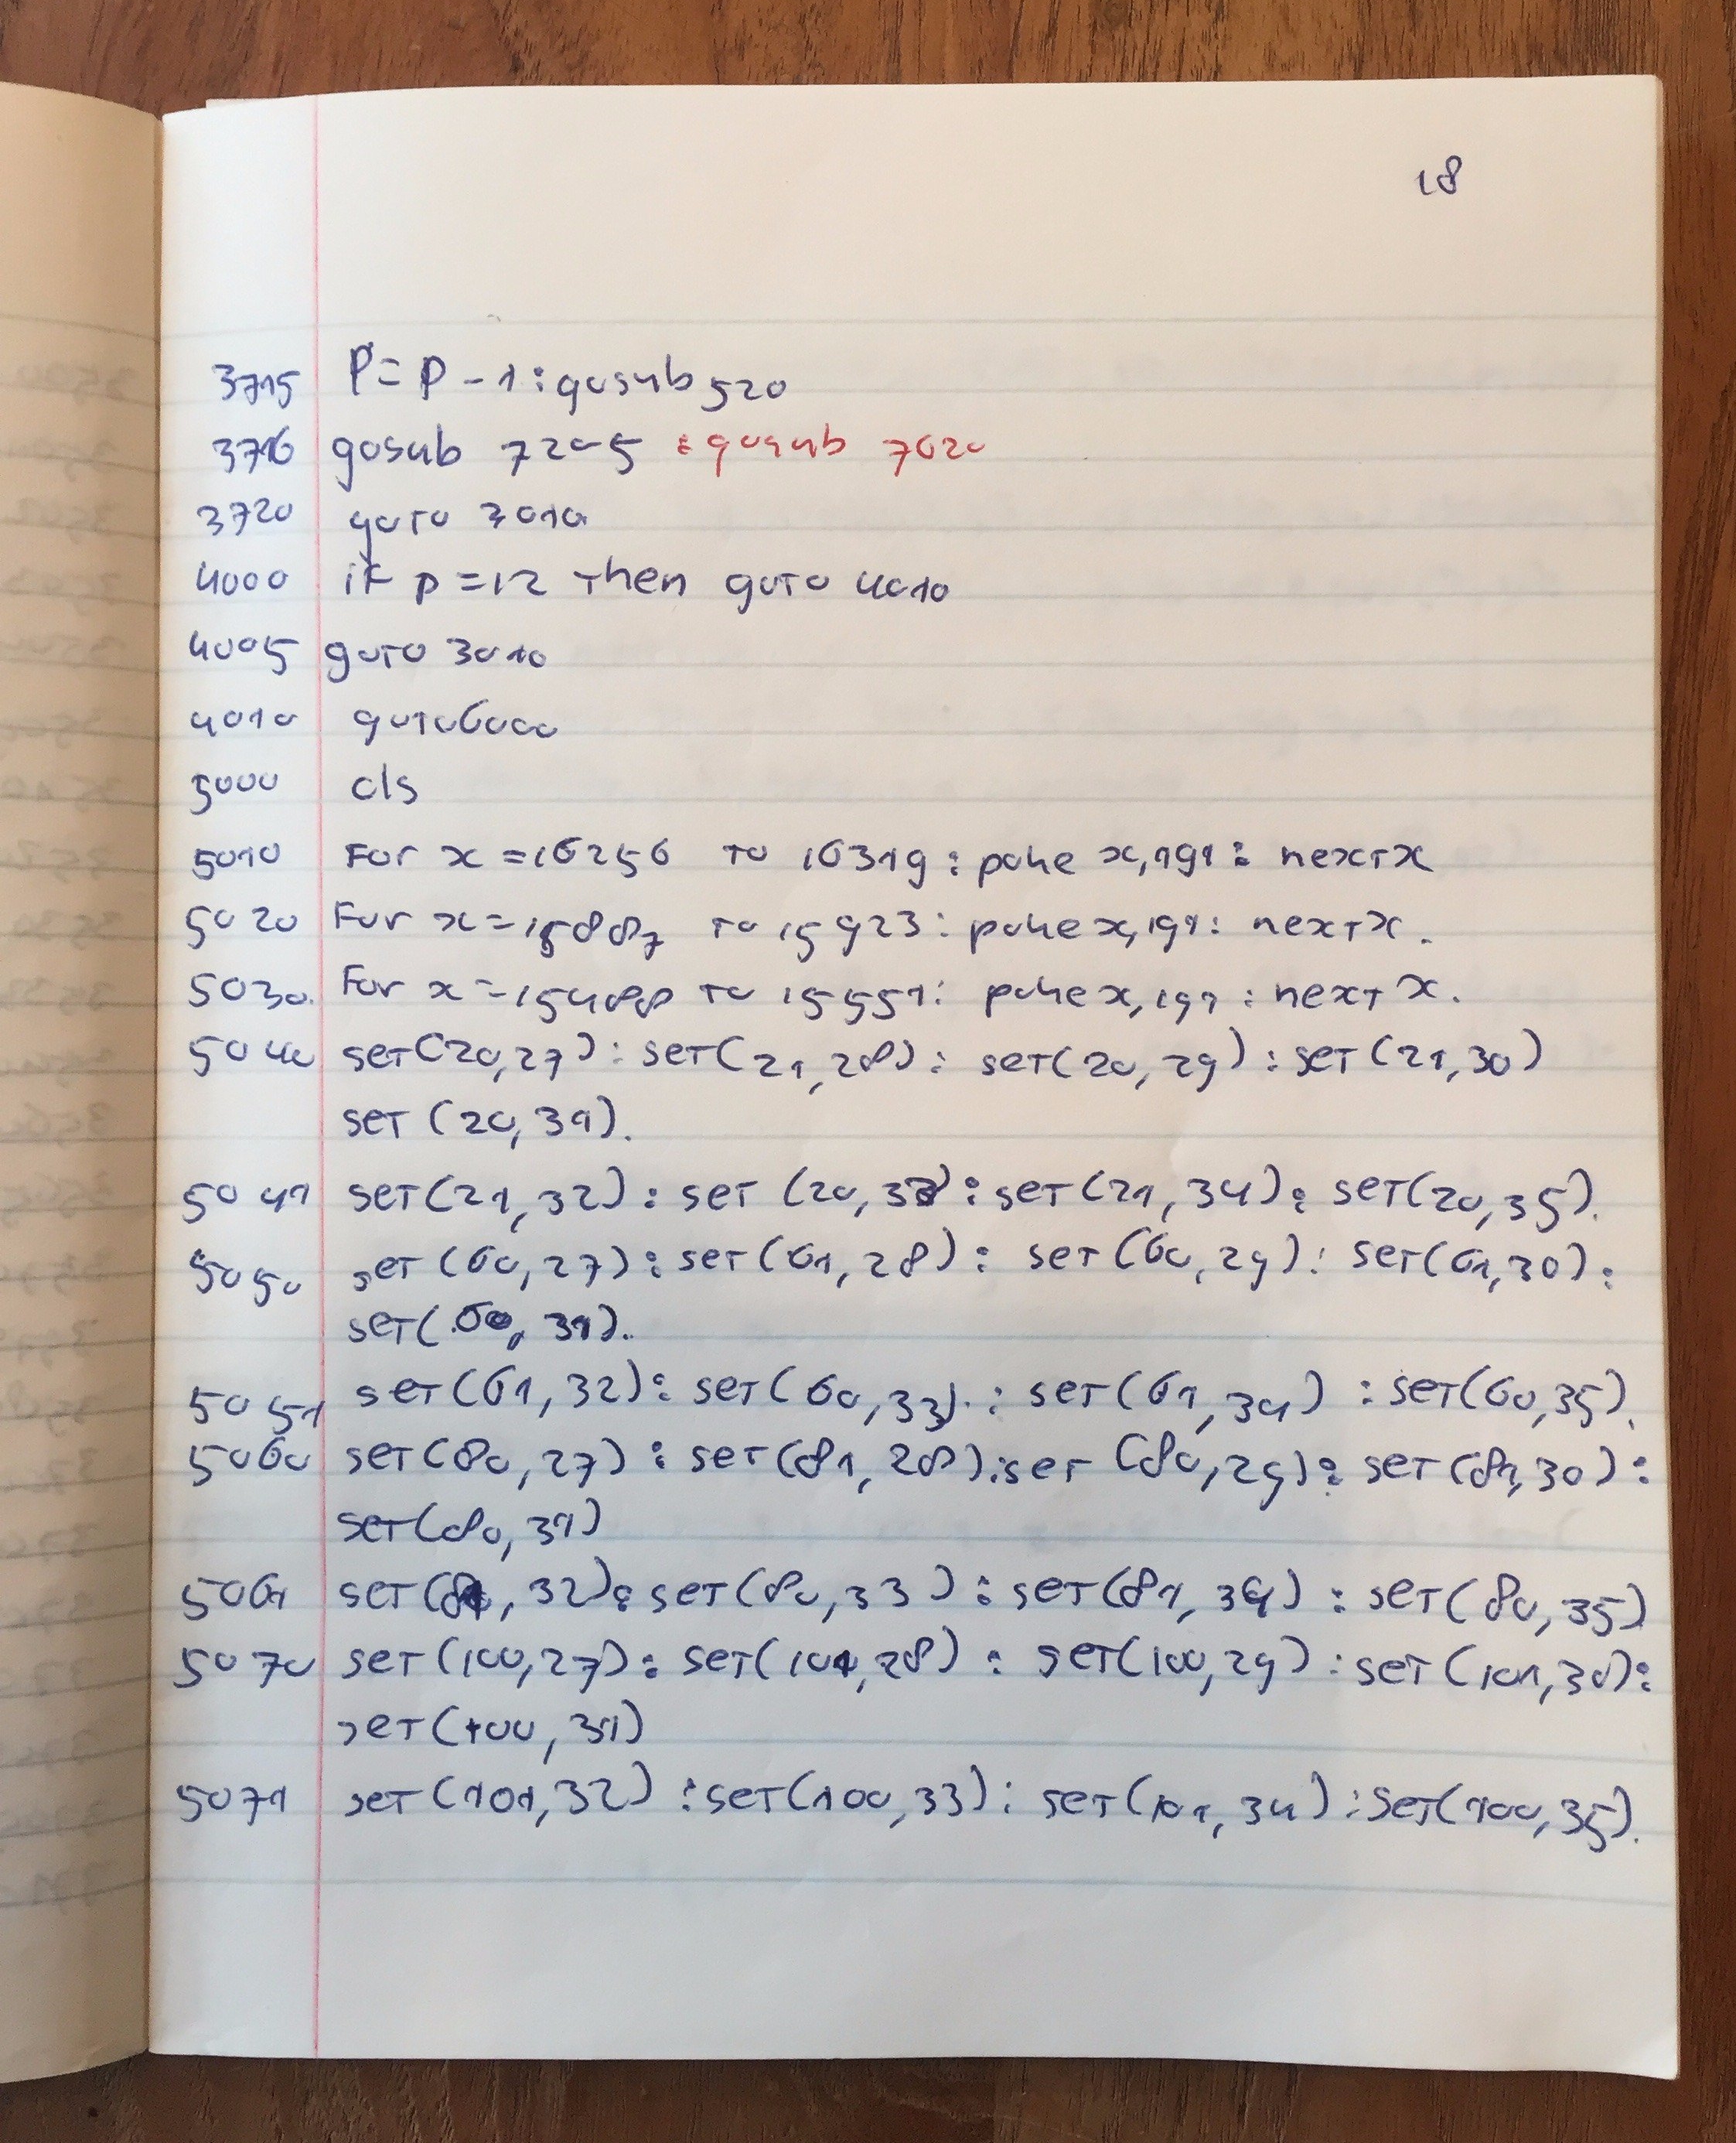 18
3715 P=P-1:gosub 520
3716 gosub 7205 :gosub 7020
3720 goto 3010
4000 if p=12 then goto 4010
4005 goto 3010
4010 goto 6000
5000 cls
5010 For x=16256 to 16319: poke x,191: next x
5020 For x=15887 to 15923: poke x,191: next x.
5030. For x=15488 to 15551: poke x,191: next x.
5040 set(20,27): set(21,28): set(20,29): set(21,30)
set (20,31).
5041 set(21,32): set (20,33): set(21,34): set(20,35).
5050 set(60,27): set(61,28): set(60,29): set(61,30):
set(60,31).
5051 set(61,32): set(60,33).: set(61,34) :set(60,35).
5060 set(80,27): set(81,28):set (80,29): set(81,30):
set(80,31)
5061 set(81,32): set(80,33): set(81,34): set(80,35)
5070 set(100,27): set(101,28): set(100,29): set(101,30):
set(100,31)
5071 set(101,32) :set(100,33): set(101,34) :set(100,35).